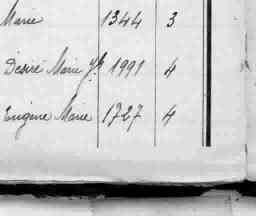 Marie 1344 3
Désiré Marie Jh 1991 4
Eugène Marie 1727 4